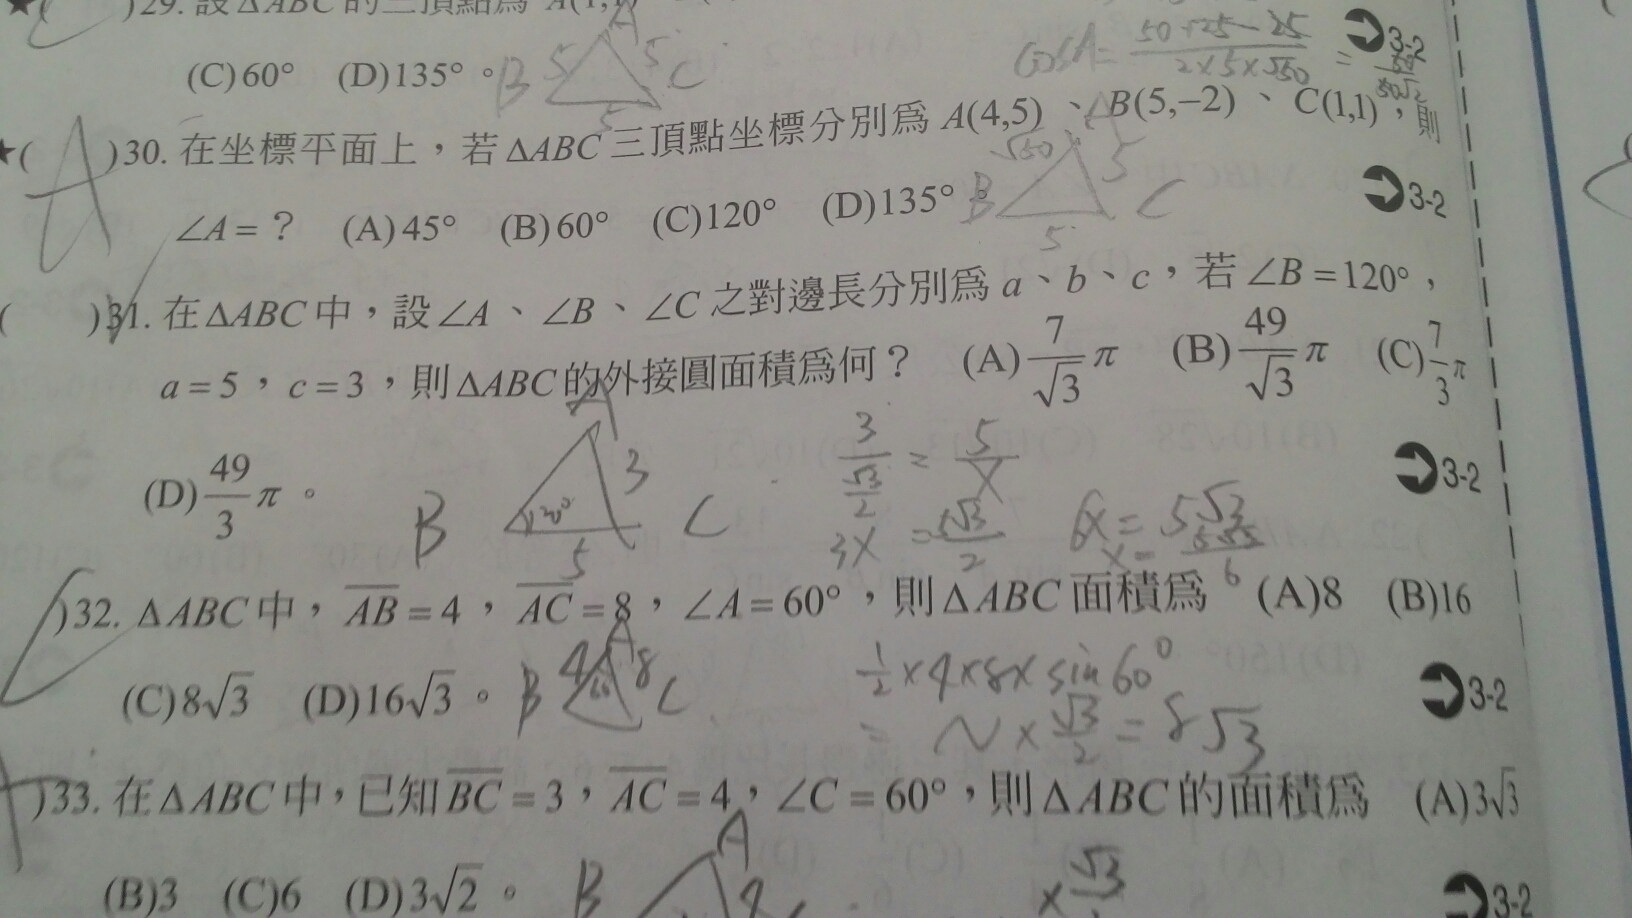 )29. 設ΔABC的三頂點為 A(1,1)
(C)60° (D)135°。
B 5 A 5 C 5
cosA = \frac{50+25-25}{2×5×√50} =
3-2
50√2
A )30. 在坐標平面上,若ΔABC三頂點坐標分別為 A(4,5)、B(5,−2)、C(1,1),則
∠A = ? (A)45° (B)60° (C)120° (D)135°。
√50 A 5 B 5 C
3-2
( )31. 在ΔABC中,設∠A、∠B、∠C之對邊長分別為 a、b、c,若∠B = 120°,
a = 5,c = 3,則ΔABC的外接圓面積為何? (A)\frac{7}{√3}π (B)\frac{49}{√3}π (C)\frac{7}{3}π
(D)\frac{49}{3}π。
A B 120° 3 C 5
\frac{3}{\frac{√3}{2}} = \frac{5}{X}
3X = \frac{5√3}{2}
6X = 5√3
3-2
)32. ΔABC中,AB = 4,AC = 8,∠A = 60°,則ΔABC面積為 (A)8 (B)16
(C)8√3 (D)16√3。
B 4 A 8 C
\frac{1}{2}×4×8×sin60°
× \frac{√3}{2} = 8√3
3-2
)33. 在ΔABC中,已知BC = 3,AC = 4,∠C = 60°,則ΔABC的面積為 (A)3√3
(B)3 (C)6 (D)3√2。
B A 4
3-2